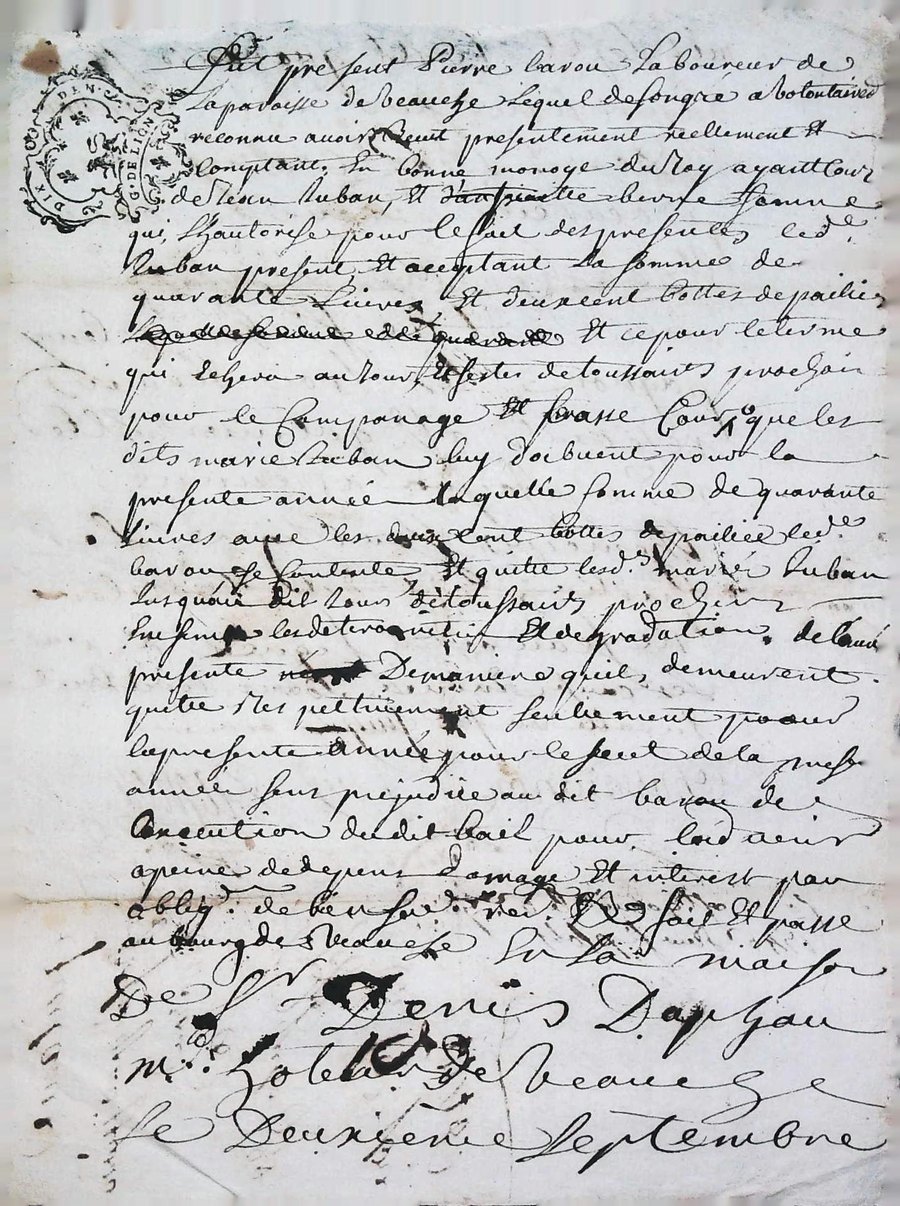 DIX DEN.
G. DE LION
Fut present Pierre barou Laboureur de
La paroisse de Veauche Lequel de son gre a volontaired
reconnu avoir Receut presentement reellement Et
Comptant En bonne monoye du Roy ayant Cour
de Jean Ruban, Et berne femme
qui L'hautorise pour le fait des presentes led.e
Ruban present Et acceptant La somme de
quarante Livres Et deux cent bottes de paillie
Et ce pour le terme
qui Echera au Jour Et festes de toussaints prochain
pour le Companage Et basse Cour que les
dits marié Ruban luy doibvent pour la
presente année laquelle somme de quarante
Livres avec les deux cent bottes de paillie led.e
barou se Contente Et quitte lesd.s mariés Ruban
Jusqu'au dit Jour de toussaints prochins
Ensemble les deterioration Et degradation de l'année
presente De maniere quil demeurent
quitte respectivement seulement pour
la presente année pour le de la
année sans prejudice au dit barou de
execution du dit bail pour l'advenir
a peine de depens damage Et interest par
oblig. de ren. fait Et passé
au bourg de Veauche En La maison
De Sr Denis Daphau
m.d hoteur de Veauche
Le Deuxieme Septembre